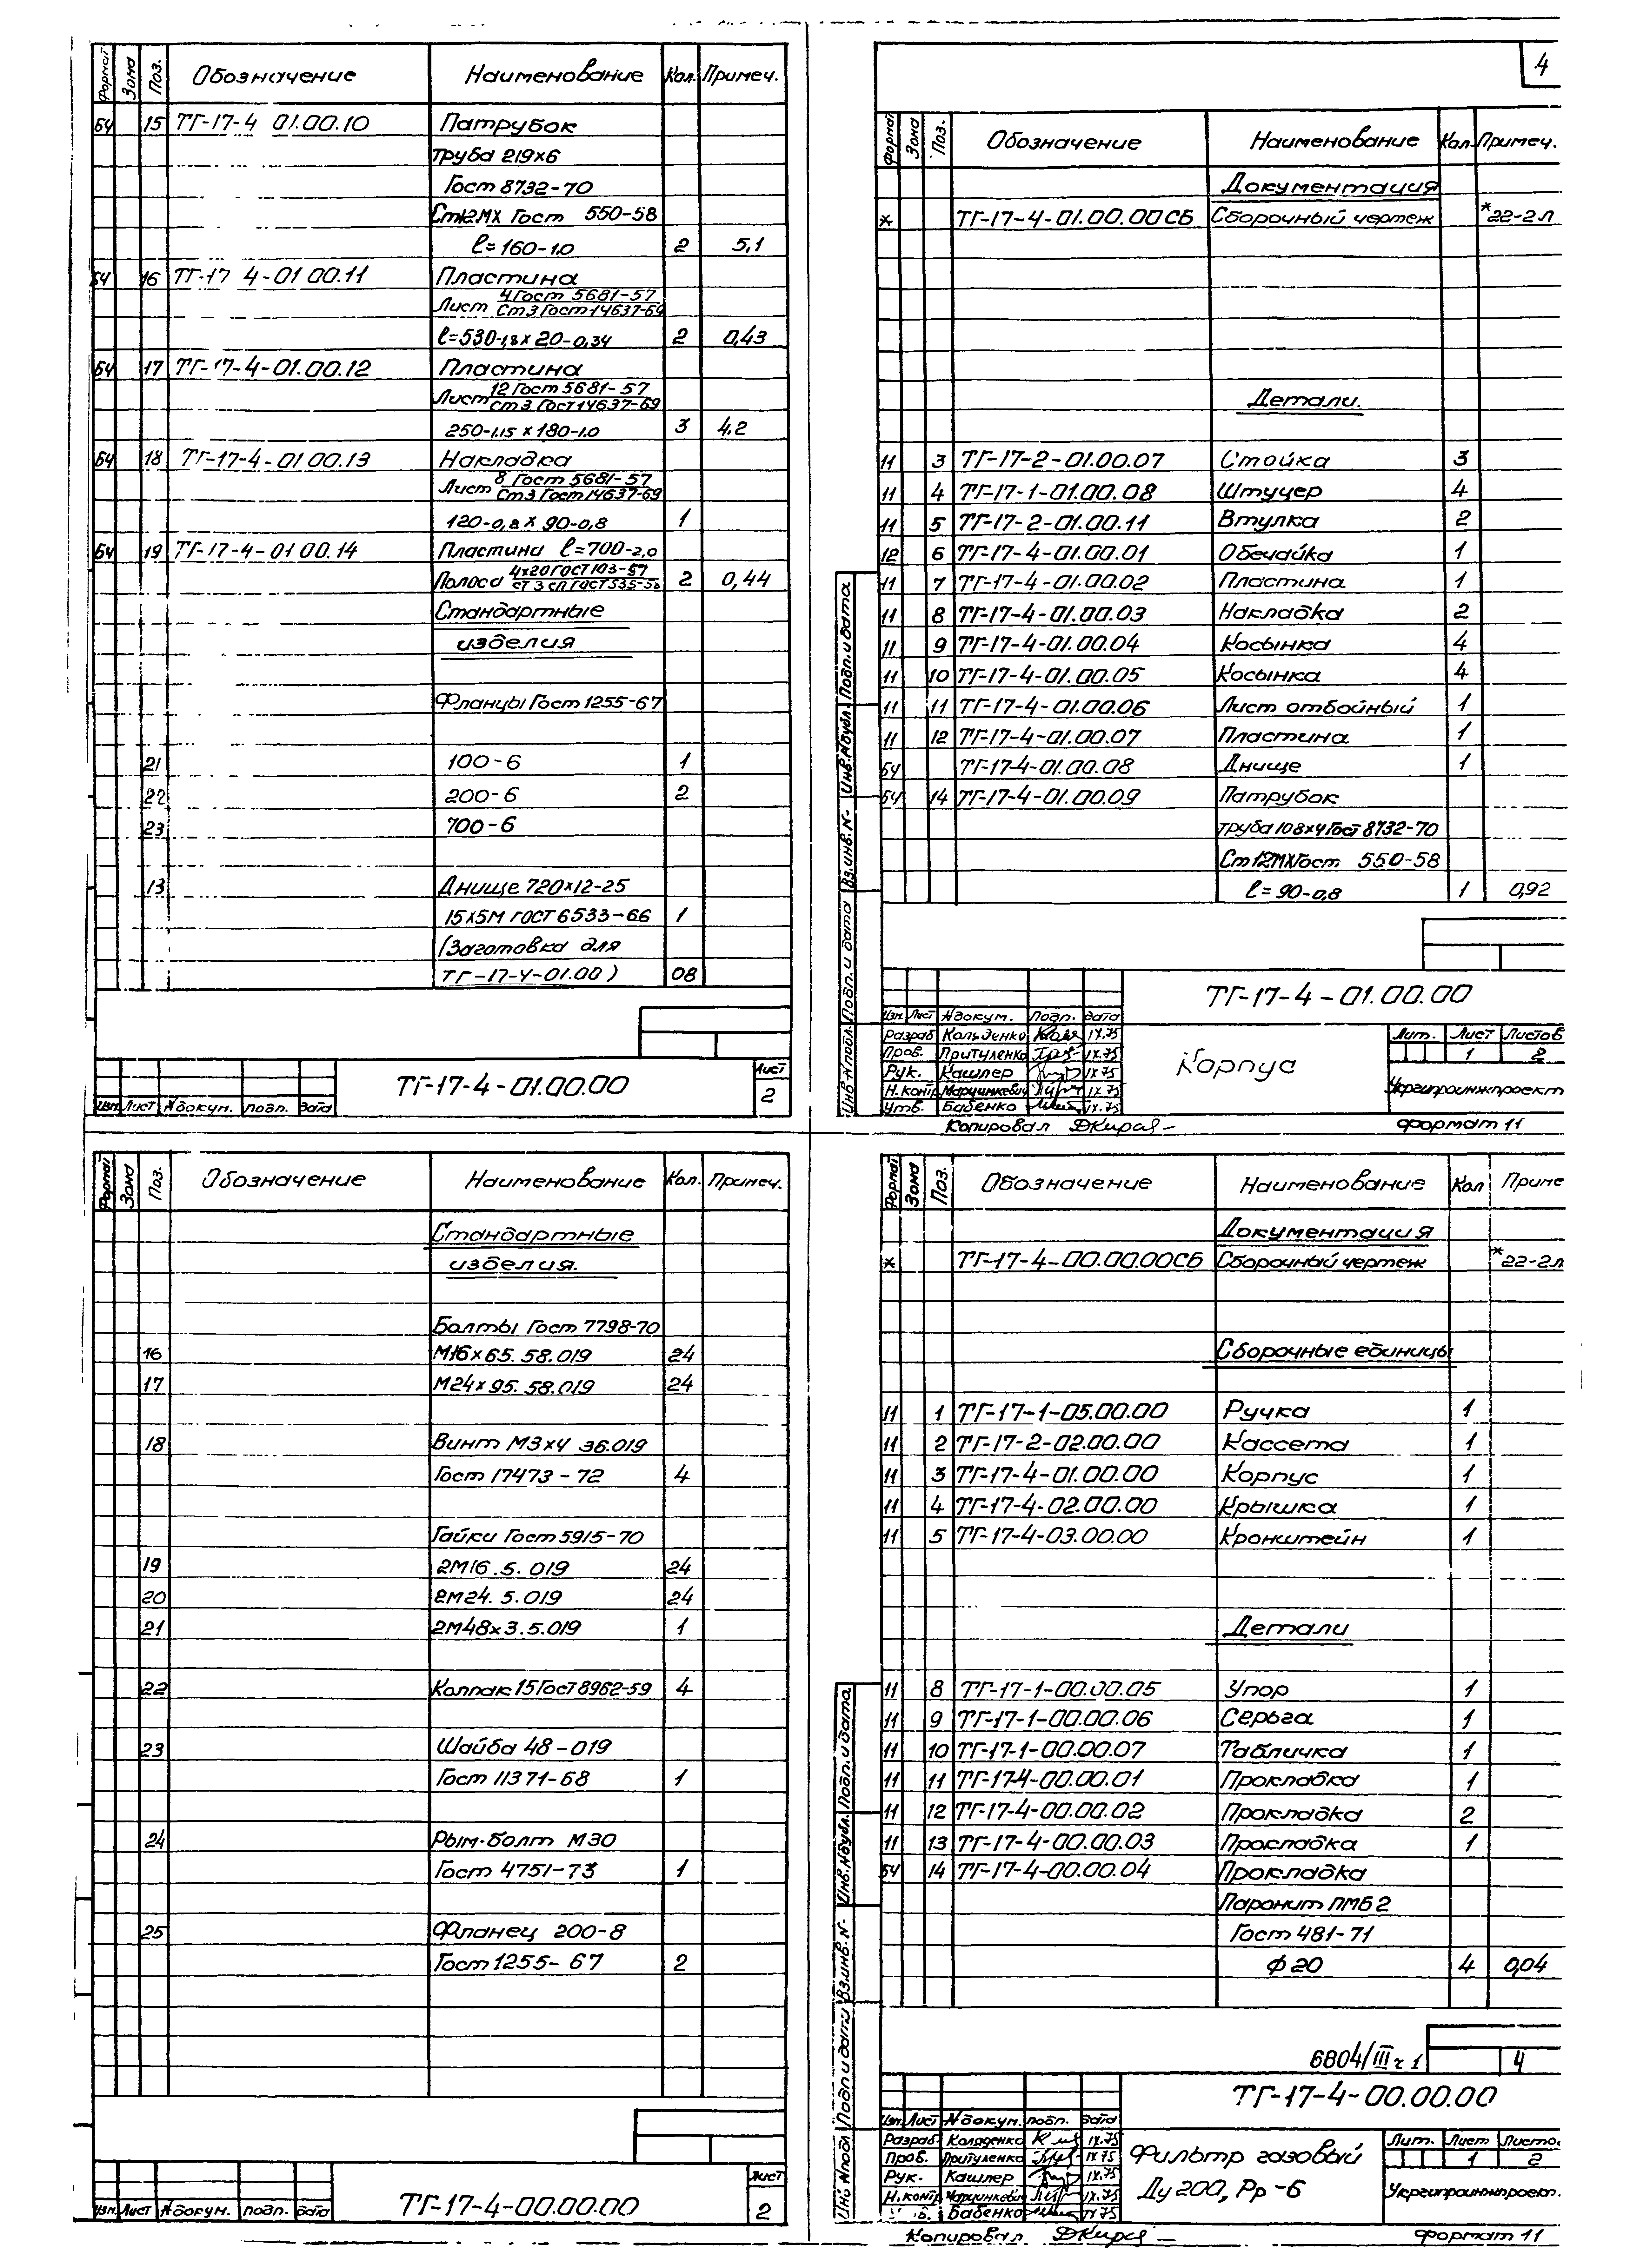 Формат Зона Поз. Обозначение Наименование Кол. Примеч.
БЧ 15 ТГ-17-4 01.00.10 Патрубок
труба 219×6
Гост 8732-70
Ст12МХ Гост 550-58
ℓ=160-1.0 2 5,1
БЧ 16 ТГ-17 4-01 00.11 Пластина
Лист 4 Гост 5681-57
Ст3 Гост 14637-69
ℓ=530-1,8 × 20-0,34 2 0,43
БЧ 17 ТГ-17-4-01.00.12 Пластина
Лист 12 Гост 5681-57
Ст3 Гост 14637-69
250-1.15 × 180-1.0 3 4.2
БЧ 18 ТГ-17-4-01 00.13 Накладка
Лист 8 Гост 5681-57
Ст3 Гост 14637-69
120-0,8 × 90-0,8 1
БЧ 19 ТГ-17-4-01 00.14 Пластина ℓ=700-2,0
Полоса 4×20 ГОСТ 103-57
СТ 3 сп ГОСТ 535-58 2 0,44
Стандартные
изделия
Фланцы Гост 1255-67
21 100-6 1
22 200-6 2
23 700-6
13 Днище 720×12-25
15Х5М ГОСТ 6533-66 1
(Заготовка для
ТГ-17-4-01.00) 08
ТГ-17-4-01.00.00
Лист
2
Изм. Лист № докум. подп. дата
4
Формат Зона Поз. Обозначение Наименование Кол. Примеч.
Документация
* ТГ-17-4-01.00.00СБ Сборочный чертеж *22-2л
Детали.
11 3 ТГ-17-2-01.00.07 Стойка 3
11 4 ТГ-17-1-01.00.08 Штуцер 4
11 5 ТГ-17-2-01.00.11 Втулка 2
12 6 ТГ-17-4-01.00.01 Обечайка 1
11 7 ТГ-17-4-01.00.02 Пластина 1
11 8 ТГ-17-4-01.00.03 Накладка 2
11 9 ТГ-17-4-01.00.04 Косынка 4
11 10 ТГ-17-4-01.00.05 Косынка 4
11 11 ТГ-17-4-01.00.06 Лист отбойный 1
11 12 ТГ-17-4-01.00.07 Пластина 1
БЧ ТГ-17-4-01.00.08 Днище 1
БЧ 14 ТГ-17-4-01.00.09 Патрубок
труба 108×4 Гост 8732-70
Ст12МХ Гост 550-58
ℓ=90-0,8 1 0,92
Инв.№подл. Подп. и дата Вз.инв.№ Инв.№дубл. Подп. и дата
ТГ-17-4-01.00.00
Изм. Лист № докум. Подп. дата
Разраб IX.75
Пров. Притуленко IX.75
Рук. Кашлер IX.75
Н.контр. Марцинкевич IX.75
Утв. Бабенко IX.75
Корпус
Лит. Лист Листов
1 2
Укргипроинжпроект
Копировал
Формат 11
Формат Зона Поз. Обозначение Наименование Кол. Примеч.
Стандартные
изделия.
Болты Гост 7798-70
16 М16×65.58.019 24
17 М24×95.58.019 24
18 Винт М3×4 36.019
Гост 17473-72 4
Гайки Гост 5915-70
19 2М16.5.019 24
20 2М24.5.019 24
21 2М48×3.5.019 1
22 Колпак 15 Гост 8962-59 4
23 Шайба 48-019
Гост 11371-68 1
24 Рым-болт М30
Гост 4751-73 1
25 Фланец 200-8
Гост 1255-67 2
ТГ-17-4-00.00.00
Лист
2
Изм. Лист № докум. подп. дата
Формат Зона Поз. Обозначение Наименование Кол Приме
Документация
* ТГ-17-4-00.00.00СБ Сборочный чертеж *22-2л
Сборочные единицы
11 1 ТГ-17-1-05.00.00 Ручка 1
11 2 ТГ-17-2-02.00.00 Кассета 1
11 3 ТГ-17-4-01.00.00 Корпус 1
11 4 ТГ-17-4-02.00.00 Крышка 1
11 5 ТГ-17-4-03.00.00 Кронштейн 1
Детали
11 8 ТГ-17-1-00.00.05 Упор 1
11 9 ТГ-17-1-00.00.06 Серьга 1
11 10 ТГ-17-1-00.00.07 Табличка 1
11 11 ТГ-17-4-00.00.01 Прокладка 1
11 12 ТГ-17-4-00.00.02 Прокладка 2
11 13 ТГ-17-4-00.00.03 Прокладка 1
БЧ 14 ТГ-17-4-00.00.04 Прокладка
Паронит ПМБ 2
Гост 481-71
Ф 20 4 0,04
Инв.№подл Подп и дата Вз.инв.№ Инв.№дубл. Подп. и дата
6804/III ч 1 4
ТГ-17-4-00.00.00
Изм. Лист № докум. подп. дата
Разраб IX.75
Пров. Притуленко IX 75
Рук. Кашлер IX.75
Н.контр Марцинкевич IX.75
Бабенко IX 75
Фильтр газовый
Ду 200, Рр-6
Лит. Лист Листо.
1 2
Укргипроинжпроект.
Копировал
Формат 11